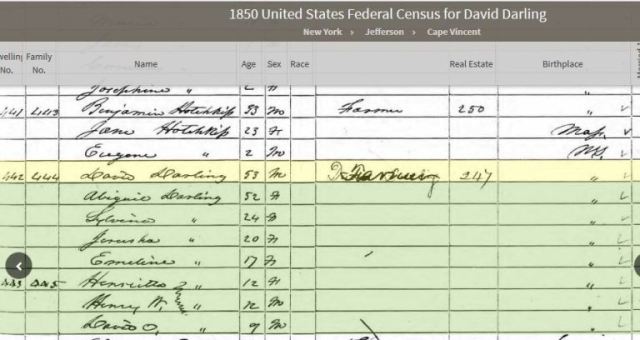 1850 United States Federal Census for David Darling
New York > Jefferson > Cape Vincent
Dwelling No. Family No. Name Age Sex Race Real Estate Birthplace
Josephine "
441 443 Benjamin Hotchkiss 33 M Farmer 250 "
Jane Hotchkiss 23 F Mass.
Eugene " 2 M NY
442 444 David Darling 53 M 247 "
Abiguil Darling 52 F "
Sylvina " 24 F "
Jerusha " 20 F "
Emeline " 17 F "
443 445 Henrietta " 12 F "
Henry W. " 12 M "
David O. " 9 M "